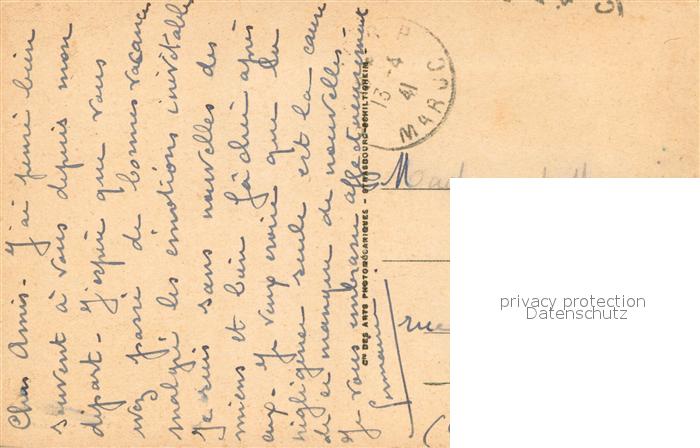 Chers Amis - J'ai pensé bien
souvent à vous depuis mon
départ - J'espère que vous
avez passé de bonnes vacances
malgré les émotions inévitables
Je suis sans nouvelles des
miens et bien fâchée après
eux. Je veux croire que la
négligence seule est la cause
de ce manque de nouvelles -
Je vous embrasse affectueusement
Germaine
Cie DES ARTS PHOTOMÉCANIQUES - STRASBOURG-SCHILTIGHEIM
13 -4
41
MAROC
rue
privacy protection
Datenschutz